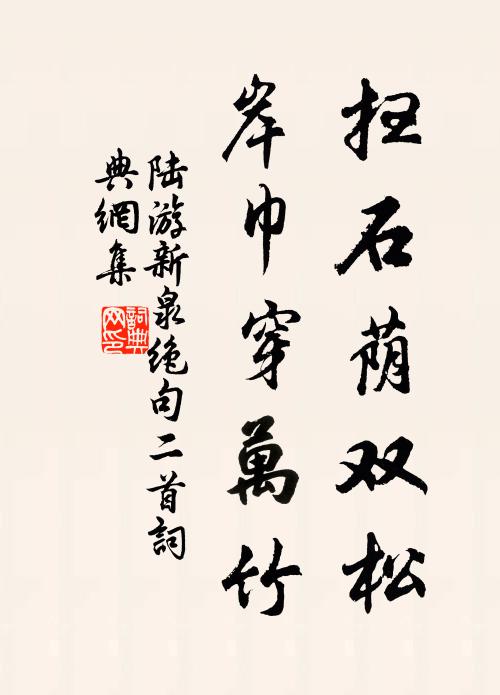 扫石荫双松
岸巾穿萬竹
陆游新泉绝句二首詞
典網集
詞典网印